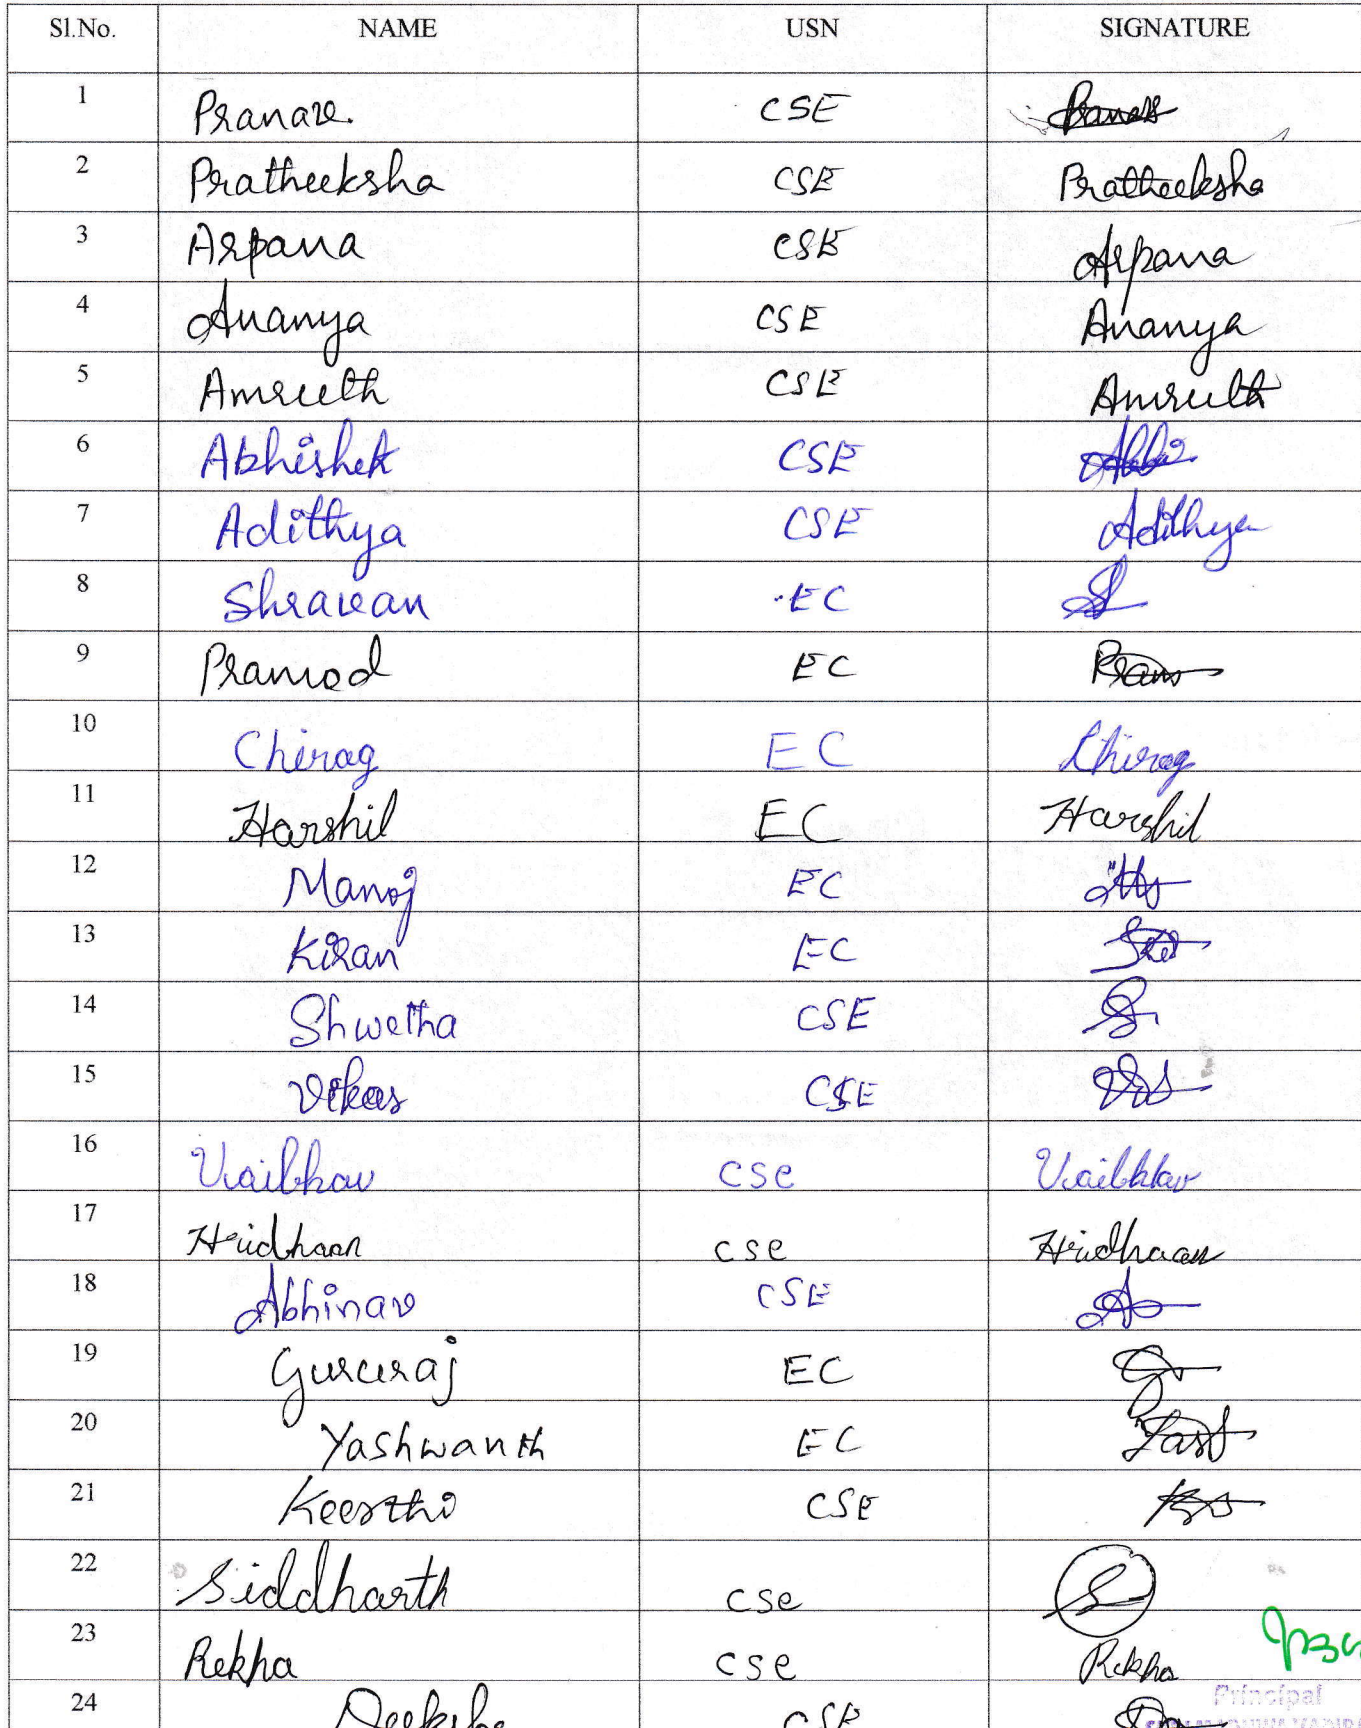 Sl.No. NAME USN SIGNATURE
1 Pranav CSE
2 Pratheeksha CSE Pratheeksha
3 Arpana CSE Arpana
4 Ananya CSE Ananya
5 Amruth CSE Amruth
6 Abhishek CSE
7 Adithya CSE Adithya
8 Shravan EC
9 Pramod EC
10 Chirag EC Chirag
11 Harshil EC Harshil
12 Manoj EC
13 Kiran EC
14 Shwetha CSE
15 Vikas CSE
16 Vaibhav cse Vaibhav
17 Hridhaan cse Hridhaan
18 Abhinav CSE
19 Gururaj EC
20 Yashwanth EC
21 Keerthi CSE
22 Siddharth cse
23 Rekha cse Rekha
Principal
24 Deeksha CSE